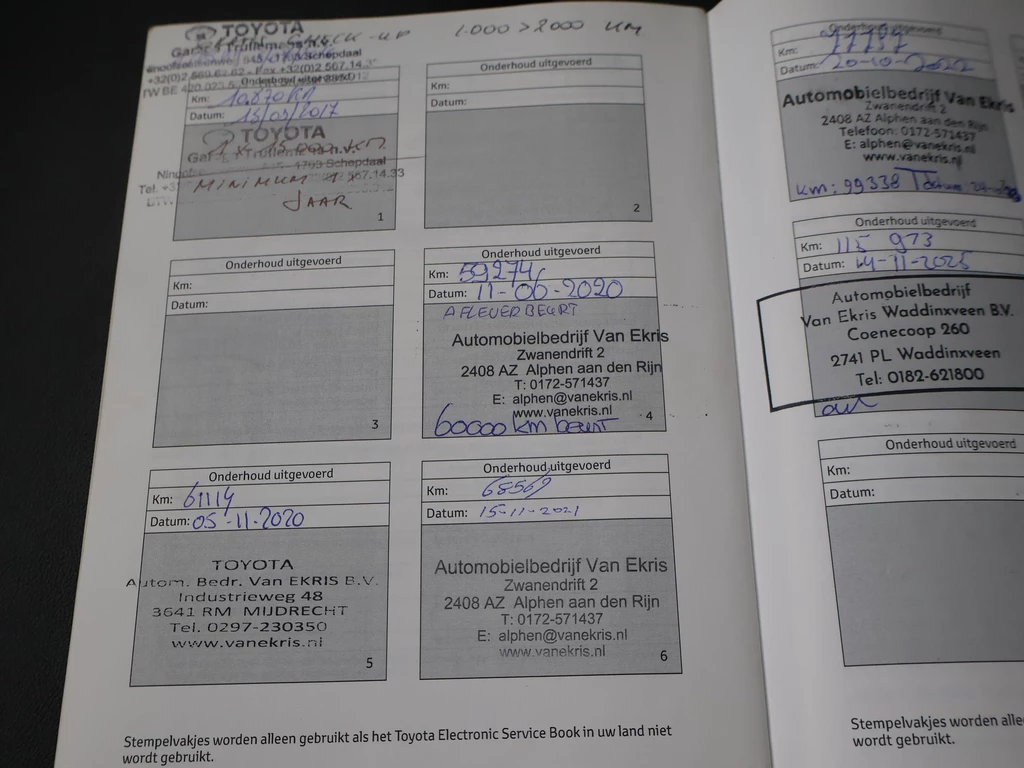 TOYOTA
CHECK-UP 1.000 > 2000 KM
Onderhoud uitgevoerd
Km: 10.870 KM
Datum: 15/03/2017
TOYOTA
1 x 15.000 KM
1703 Schepdaal
MINIMUM 1
JAAR
1
Onderhoud uitgevoerd
Km:
Datum:
2
Onderhoud uitgevoerd
Km:
Datum:
3
Onderhoud uitgevoerd
Km: 59274
Datum: 11-06-2020
AFLEVERBEURT
Automobielbedrijf Van Ekris
Zwanendrift 2
2408 AZ Alphen aan den Rijn
T: 0172-571437
E: alphen@vanekris.nl
www.vanekris.nl
60000 km beurt
4
Onderhoud uitgevoerd
Km: 61114
Datum: 05-11-2020
TOYOTA
Autom. Bedr. Van EKRIS B.V.
Industrieweg 48
3641 RM MIJDRECHT
Tel. 0297-230350
www.vanekris.nl
5
Onderhoud uitgevoerd
Km: 68569
Datum: 15-11-2021
Automobielbedrijf Van Ekris
Zwanendrift 2
2408 AZ Alphen aan den Rijn
T: 0172-571437
E: alphen@vanekris.nl
www.vanekris.nl
6
Stempelvakjes worden alleen gebruikt als het Toyota Electronic Service Book in uw land niet
wordt gebruikt.
Onderhoud uitgevoerd
Km: 77797
Datum: 20-10-2022
Automobielbedrijf Van Ekris
Zwanendrift 2
2408 AZ Alphen aan den Rijn
Telefoon: 0172-571437
E: alphen@vanekris.nl
www.vanekris.nl
Km: 99338
Onderhoud uitgevoerd
Km: 115 973
Datum: 14-11-2025
Automobielbedrijf
Van Ekris Waddinxveen B.V.
Coenecoop 260
2741 PL Waddinxveen
Tel: 0182-621800
Onderhoud uitgevoerd
Km:
Datum:
Stempelvakjes worden alleen
wordt gebruikt.